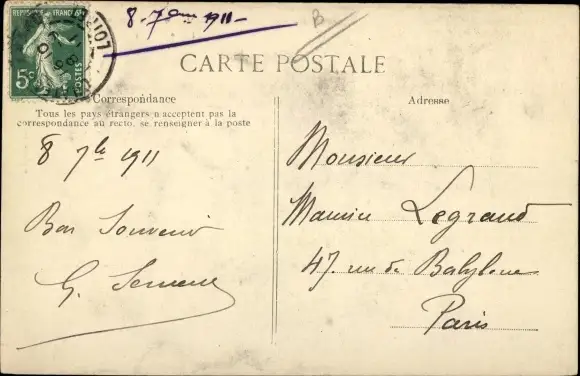 8 - 7bre 1911 -
B
REPUBLIQUE FRANCAISE
5c
POSTES
CARTE POSTALE
Correspondance
Tous les pays étrangers n'acceptent pas la
correspondance au recto, se renseigner à la poste
8 7bre 1911
Bon Souvenir
G.
Adresse
Monsieur
Maurice Legrand
47. rue de Babylone
Paris